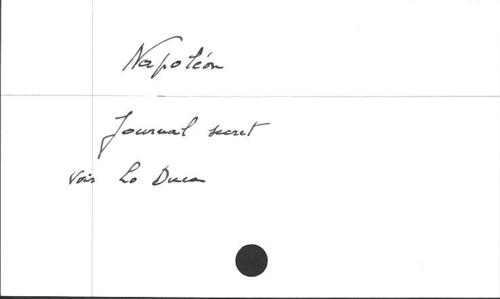 Napoléon
Journal secret
voir Lo Duca